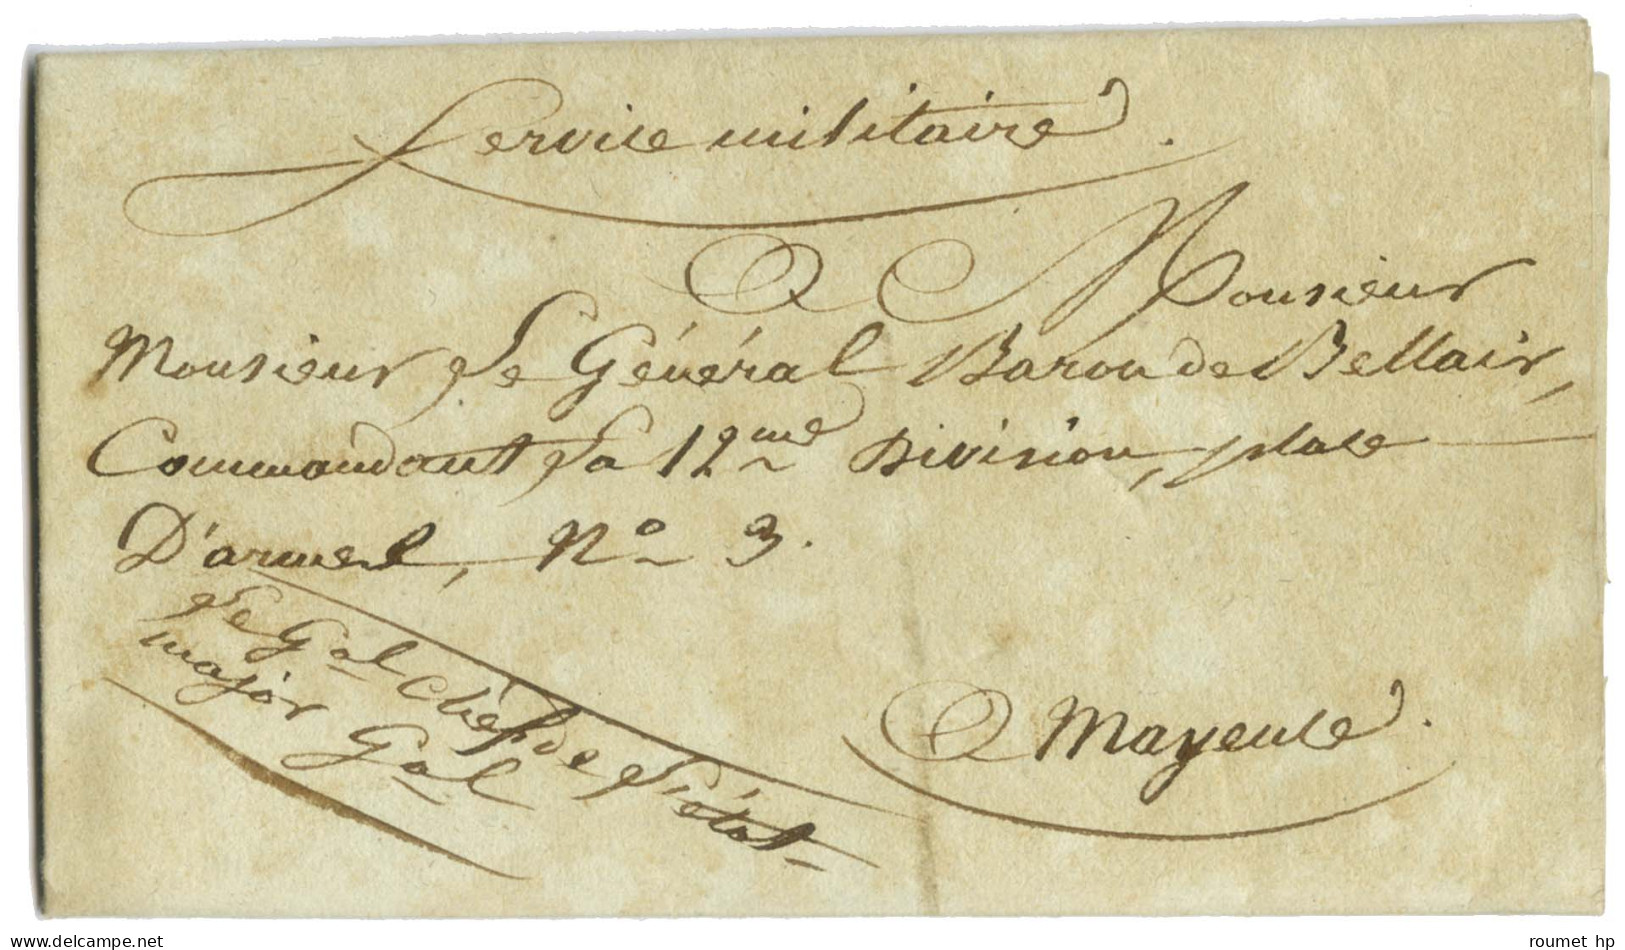 Service militaire.
A Monsieur
Monsieur Le Général Baron de Bellair,
Commandant La 12me Division, place
D'armes, No 3.
Le Gal chef de L'état-
major Gal
A Mayence.
roumet hp